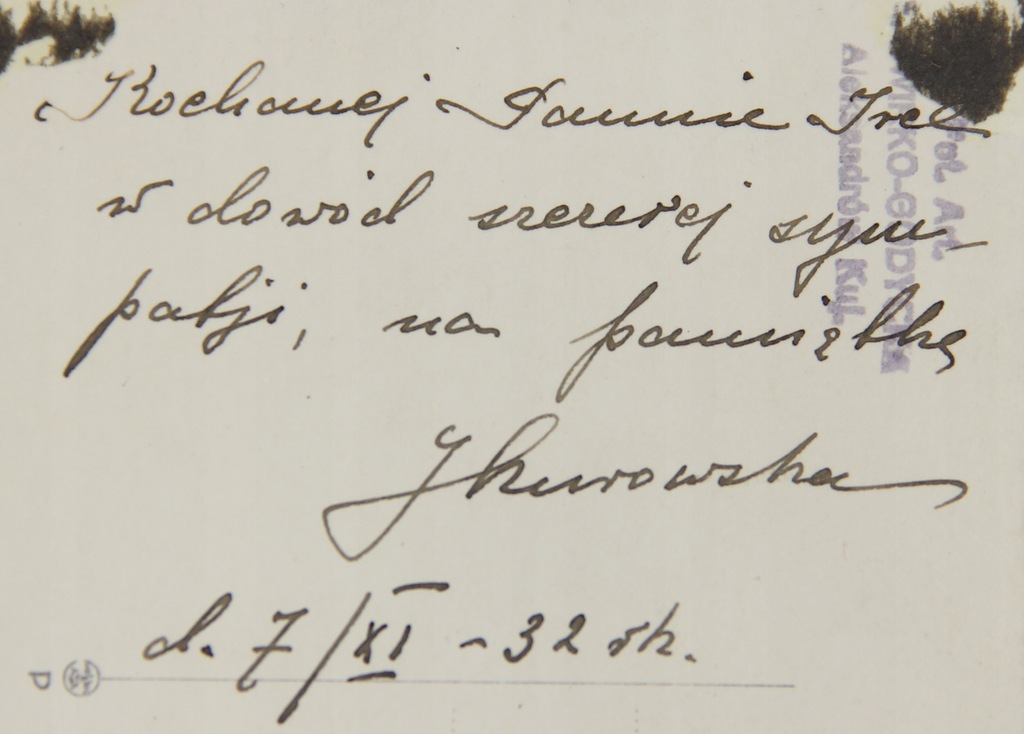 Kochanej Pannie Irce
w dowód szczerej sym-
patji, na pamiątkę
JKurowska
d. 7/XI - 32 rk.
Fot. Art.
Aleksandrów Kuj.